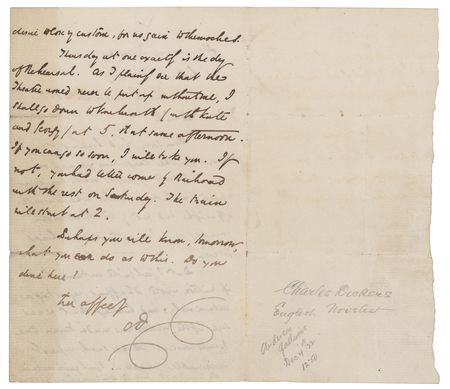 desire
custom, for us again
Thursday at one exactly is the day
of Rehearsal. As I plainly see that the
Theatre would never be put up without me, I
shall go down to Knebworth (with Kate
and Georgy) at 5, that same afternoon.
If you can go so soon, I will take you. If
not, you had better come by Railroad
with the rest on Saturday. The train
will start at 2.
Perhaps you will know, tomorrow,
what you can do as to this. Do you
dine here?
Ever affecy
CD
Charles Dickens
English Novelist
Anderson
Galleries
Nov 4 '22
12.50